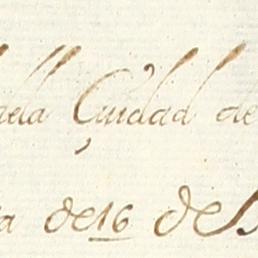 dela Çiudad de
de 16 de